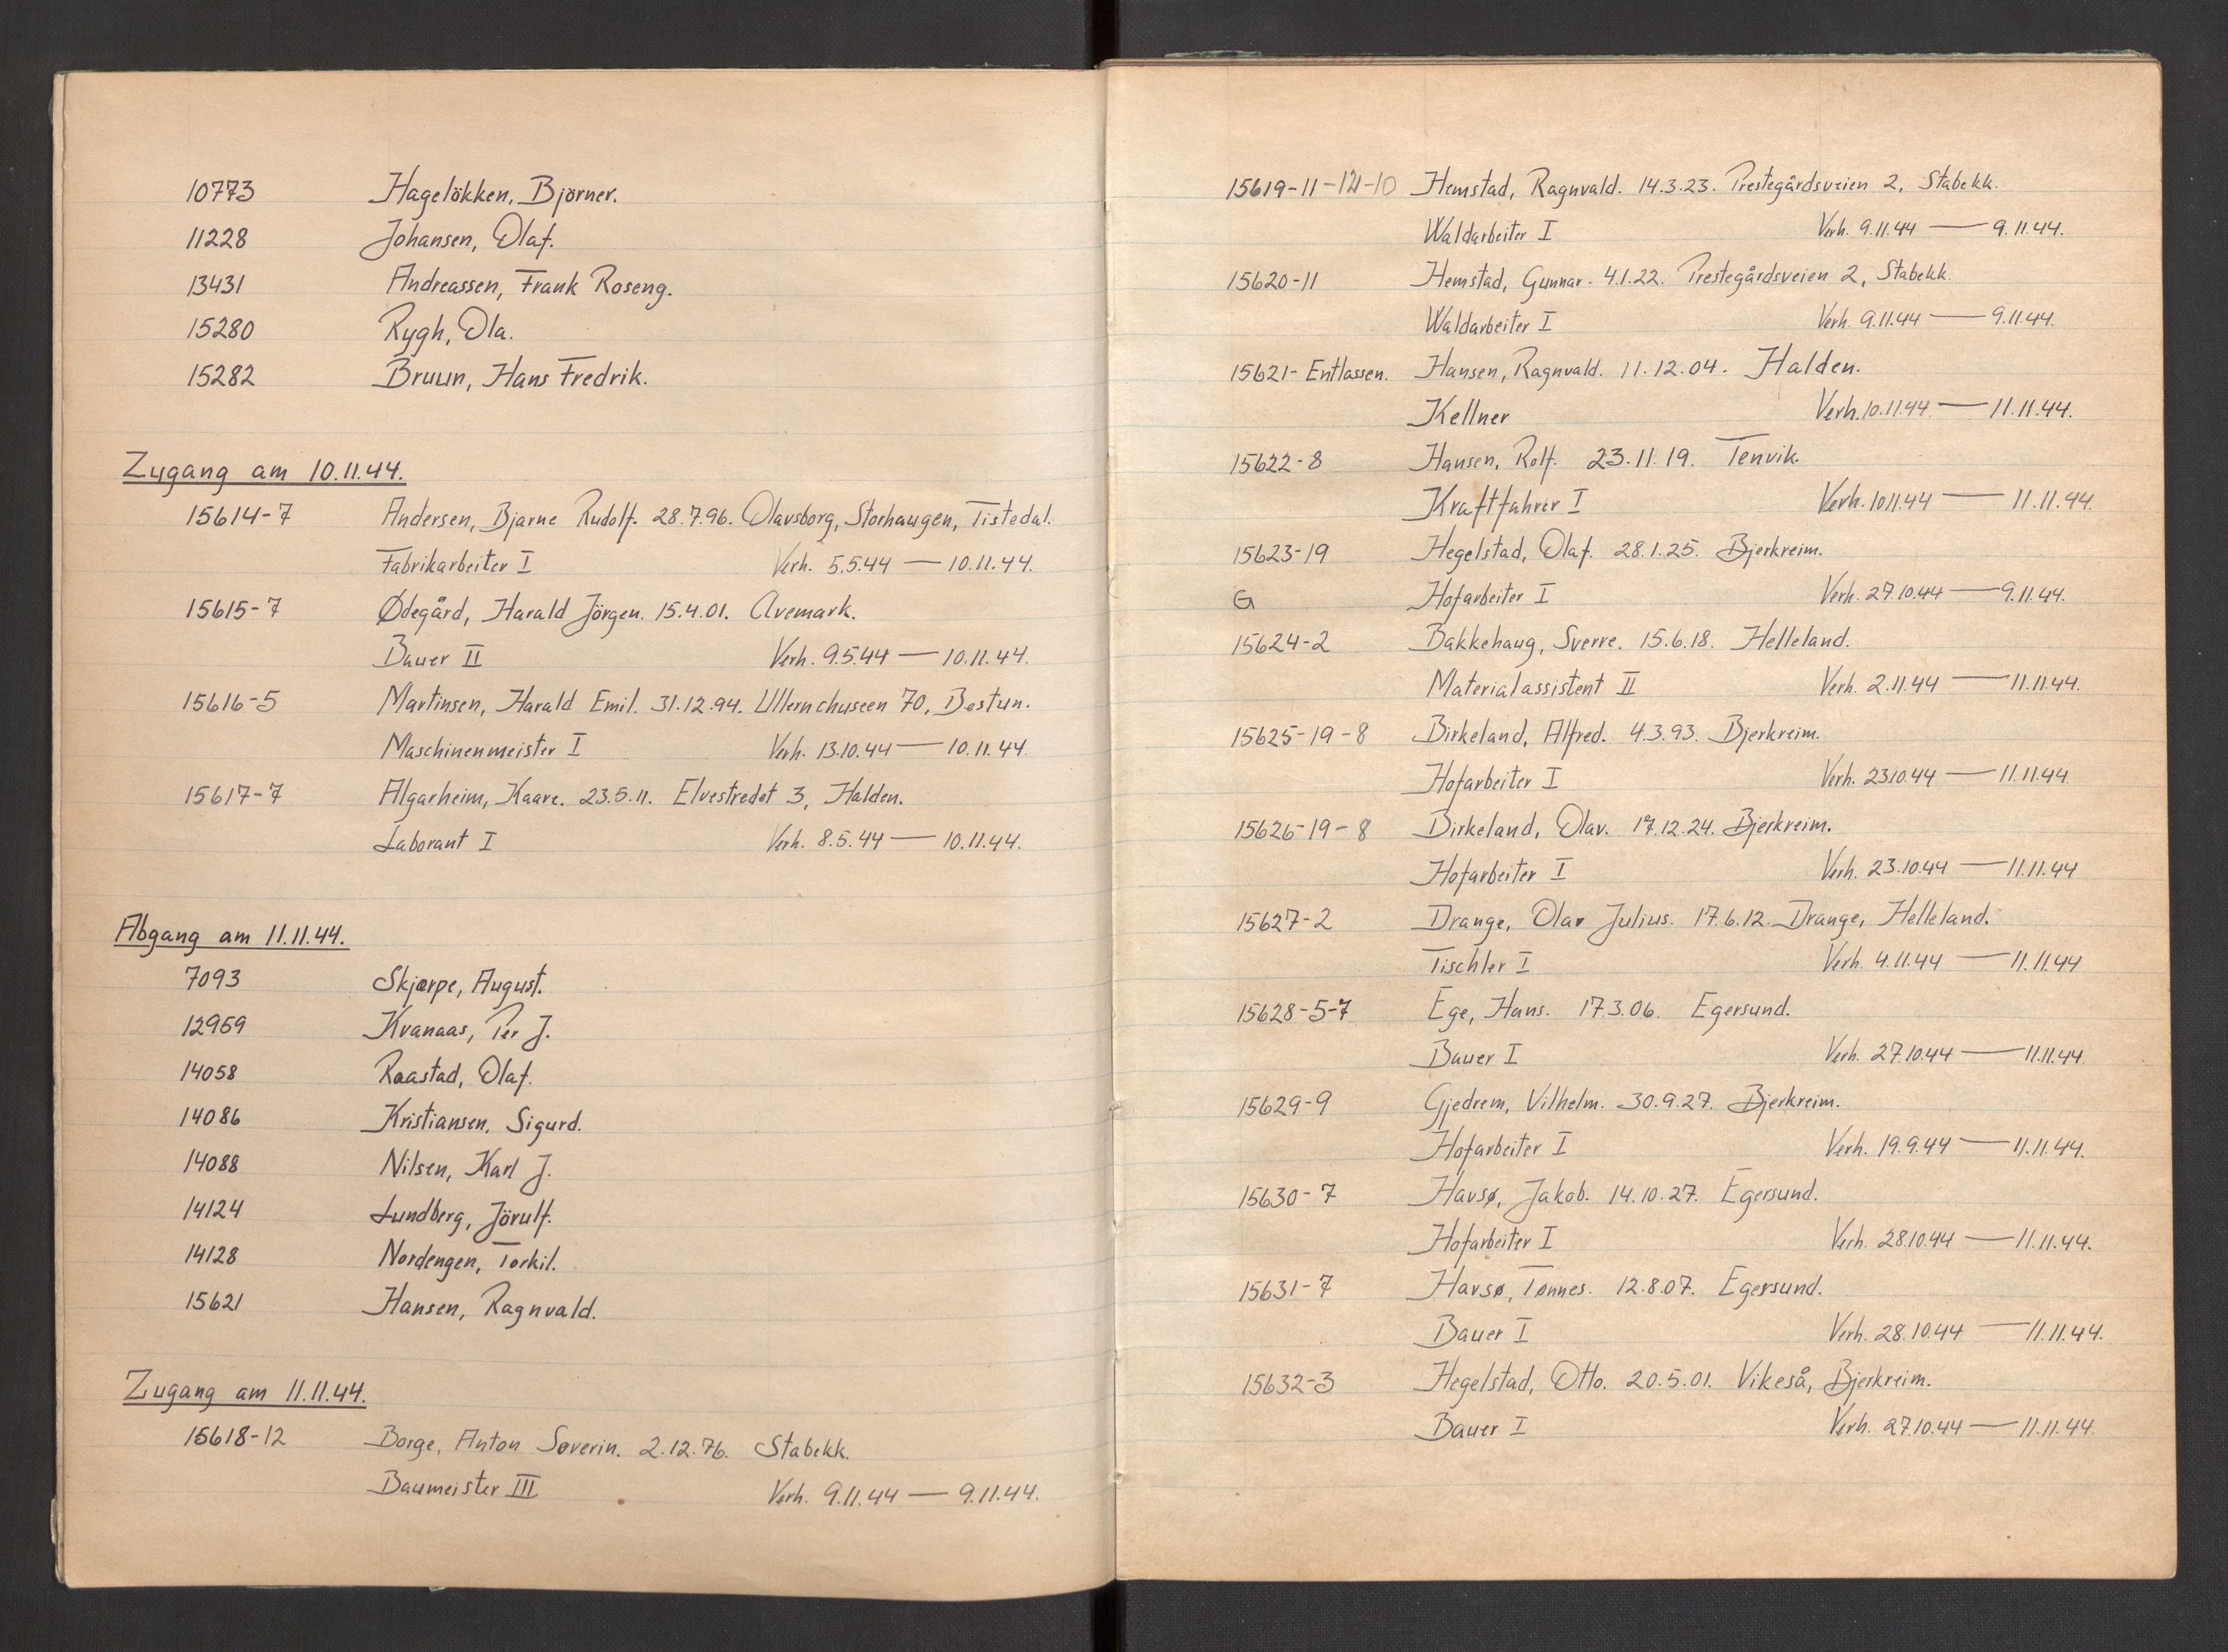 10773 Hagelökken, Björner.
11228 Johansen, Olaf.
13431 Andreassen, Frank Roseng.
15280 Rygh, Ola.
15282 Bruun, Hans Fredrik.
Zugang am 10.11.44.
15614-7 Andersen, Bjarne Rudolf. 28.7.96. Olavsborg, Storhaugen, Tistedal.
Fabrikarbeiter I Verh. 5.5.44 — 10.11.44.
15615-7 Ødegård, Harald Jörgen. 15.4.01. Aremark.
Bauer II Verh. 9.5.44 — 10.11.44.
15616-5 Martinsen, Harald Emil. 31.12.94. Ullernchuseen 70, Bestun.
Maschinenmeister I Verh. 13.10.44 — 10.11.44.
15617-7 Algarheim, Kaare. 23.5.11. Elvestredet 3, Halden.
Laborant I Verh. 8.5.44 — 10.11.44.
Abgang am 11.11.44.
7093 Skjærpe, August.
12959 Kvanaas, Per J.
14058 Raastad, Olaf.
14086 Kristiansen, Sigurd.
14088 Nilsen, Karl J.
14124 Lundberg, Jörulf.
14128 Nordengen, Torkil.
15621 Hansen, Ragnvald.
Zugang am 11.11.44.
15618-12 Borge, Anton Søverin. 2.12.76. Stabekk.
Baumeister III Verh. 9.11.44 — 9.11.44.
15619-11-12-10 Hemstad, Ragnvald. 14.3.23. Prestegårdsveien 2, Stabekk.
Waldarbeiter I Verh. 9.11.44 — 9.11.44.
15620-11 Hemstad, Gunnar. 4.1.22. Prestegårdsveien 2, Stabekk.
Waldarbeiter I Verh. 9.11.44 — 9.11.44.
15621- Entlassen. Hansen, Ragnvald. 11.12.04. Halden.
Kellner Verh. 10.11.44. — 11.11.44.
15622-8 Hansen, Rolf. 23.11.19. Tenvik.
Kraftfahrer I Verh. 10.11.44 — 11.11.44.
15623-19 Hegelstad, Olaf. 28.1.25. Bjerkreim.
G Hofarbeiter I Verh. 27.10.44 — 9.11.44.
15624-2 Bakkehaug, Sverre. 15.6.18. Helleland.
Materialassistent II Verh. 2.11.44 — 11.11.44.
15625-19-8 Birkeland, Alfred. 4.3.93. Bjerkreim.
Hofarbeiter I Verh. 23.10.44 — 11.11.44
15626-19-8 Birkeland, Olav. 17.12.24. Bjerkreim.
Hofarbeiter I Verh. 23.10.44 — 11.11.44
15627-2 Drange, Olav Julius. 17.6.12. Drange, Helleland.
Tischler I Verh. 4.11.44 — 11.11.44
15628-5-7 Ege, Hans. 17.3.06. Egersund.
Bauer I Verh. 27.10.44 — 11.11.44
15629-9 Gjedrem, Vilhelm. 30.9.27. Bjerkreim.
Hofarbeiter I Verh. 19.9.44 — 11.11.44.
15630-7 Havsø, Jakob. 14.10.27. Egersund.
Hofarbeiter I Verh. 28.10.44 — 11.11.44.
15631-7 Havsø, Tønnes. 12.8.07. Egersund.
Bauer I Verh. 28.10.44 — 11.11.44.
15632-3 Hegelstad, Otto. 20.5.01. Vikeså, Bjerkreim.
Bauer I Verh. 27.10.44 — 11.11.44.